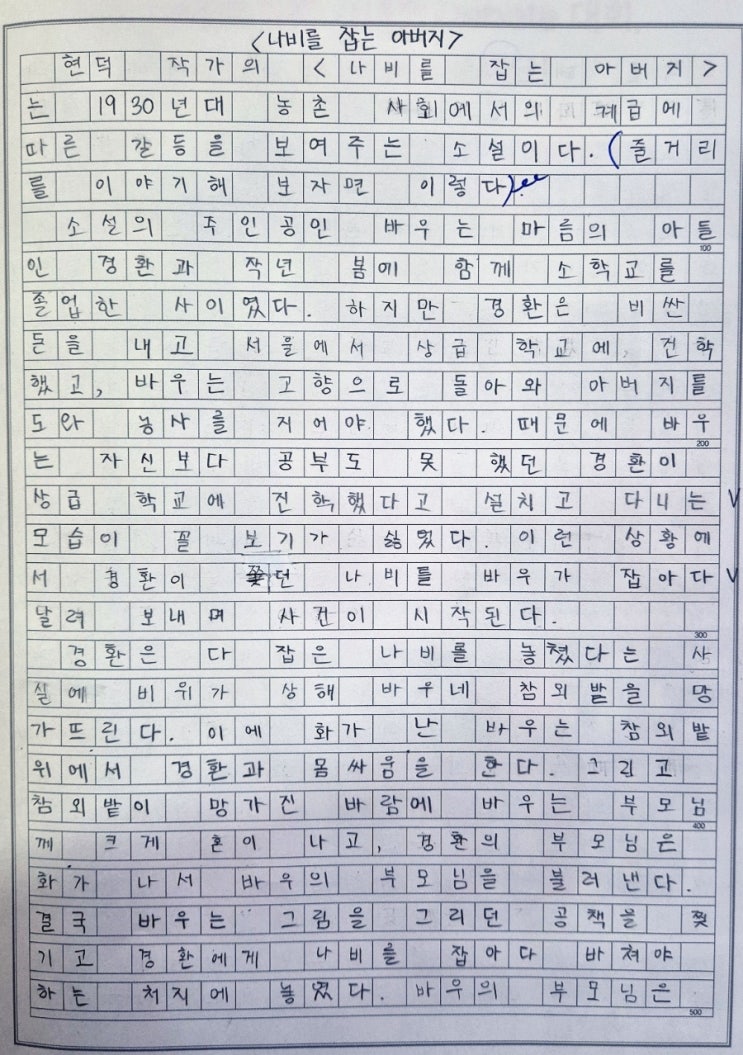 <나비를 잡는 아버지>
현덕 작가의 <나비를 잡는 아버지>
는 1930년대 농촌 사회에서의 계급에
따른 갈등을 보여주는 소설이다. (줄거리
를 이야기해 보자면 이렇다).
소설의 주인공인 바우는 마름의 아들
100
인 경환과 작년 봄에 함께 소학교를
졸업한 사이였다. 하지만 경환은 비싼
돈을 내고 서울에서 상급 학교에 진학
했고, 바우는 고향으로 돌아와 아버지를
도와 농사를 지어야 했다. 때문에 바우
200
는 자신보다 공부도 못 했던 경환이
상급 학교에 진학했다고 설치고 다니는 V
모습이 꼴 보기가 싫었다. 이런 상황에
서 경환이 쫓던 나비를 바우가 잡아다 V
달려 보내며 사건이 시작된다.
300
경환은 다 잡은 나비를 놓쳤다는 사
실에 비위가 상해 바우네 참외밭을 망
가뜨린다. 이에 화가 난 바우는 참외밭
위에서 경환과 몸싸움을 한다. 그리고
참외밭이 망가진 바람에 바우는 부모님
400
께 크게 혼이 나고, 경환의 부모님은
화가 나서 바우의 부모님을 불러낸다.
결국 바우는 그림을 그리던 공책을 찢
기고 경환에게 나비를 잡아다 바쳐야
하는 처지에 놓였다. 바우의 부모님은
500